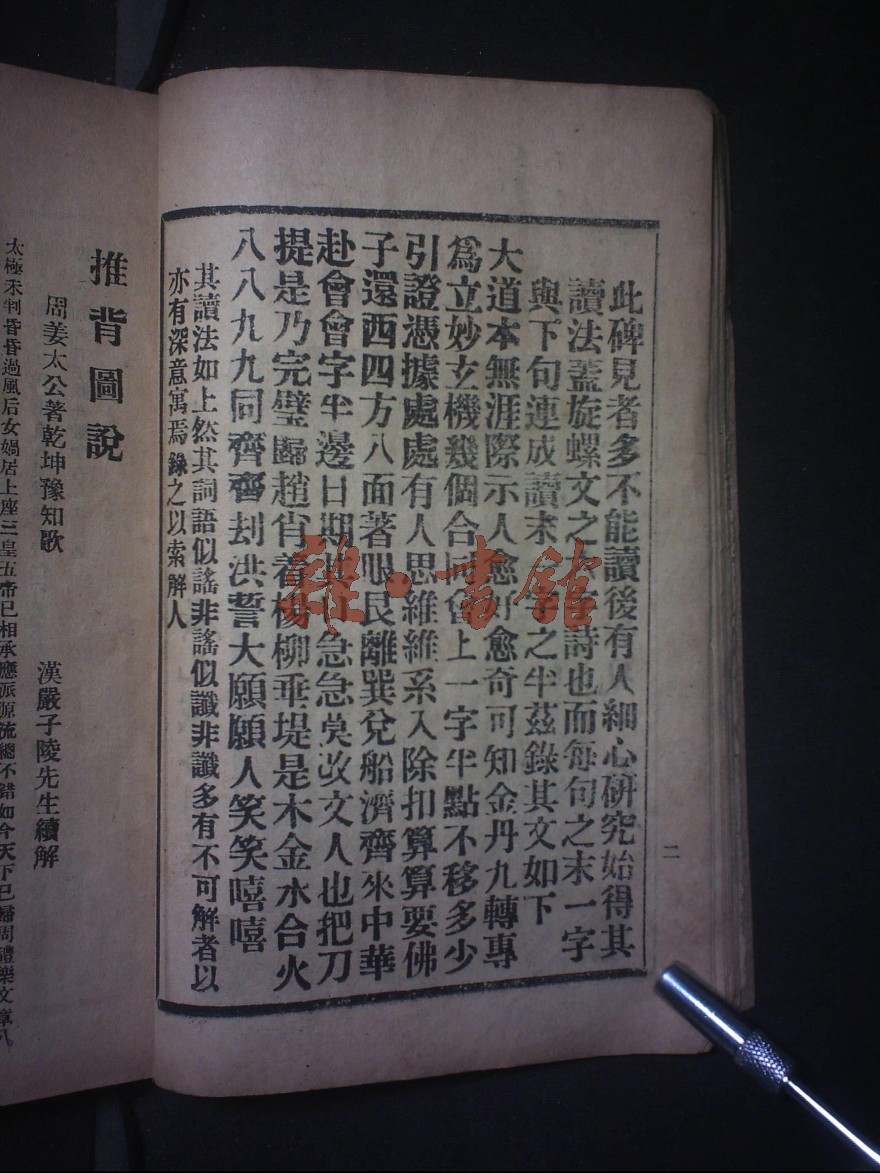 此碑見者多不能讀後有人細心研究始得其
讀法蓋旋螺文之六言詩也而每句之末一字
與下句連成讀末念字之半茲錄其文如下
大道本無涯際示人愈好愈奇可知金丹九轉專
爲立妙玄機幾個合同會上一字半點不移多少
引證憑據處處有人思維維系入除扣算算要佛
子還西四方八面著眼艮離巽兌船濟齊來中華
赴會會字半邊日期其日急急莫改文人也把刀
提是乃完璧歸趙肖着楊柳垂堤是木金水合火
八八九九同齊齊刦洪誓大願願人笑笑嘻嘻
其讀法如上然其詞語似謠非謠似讖非讖多有不可解者以
亦有深意寓焉錄之以索解人
二
雜·書館
推背圖說
周姜太公著乾坤豫知歌
漢嚴子陵先生續解
太極未判昏昏過風后女媧居上座三皇五帝已相承應派原流總不錯如今天下已歸周禮樂文章八